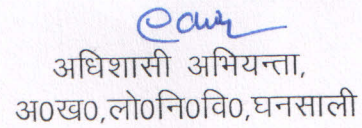 अधिशासी अभियन्ता,
अ0ख0,लो0नि0वि0,घनसाली